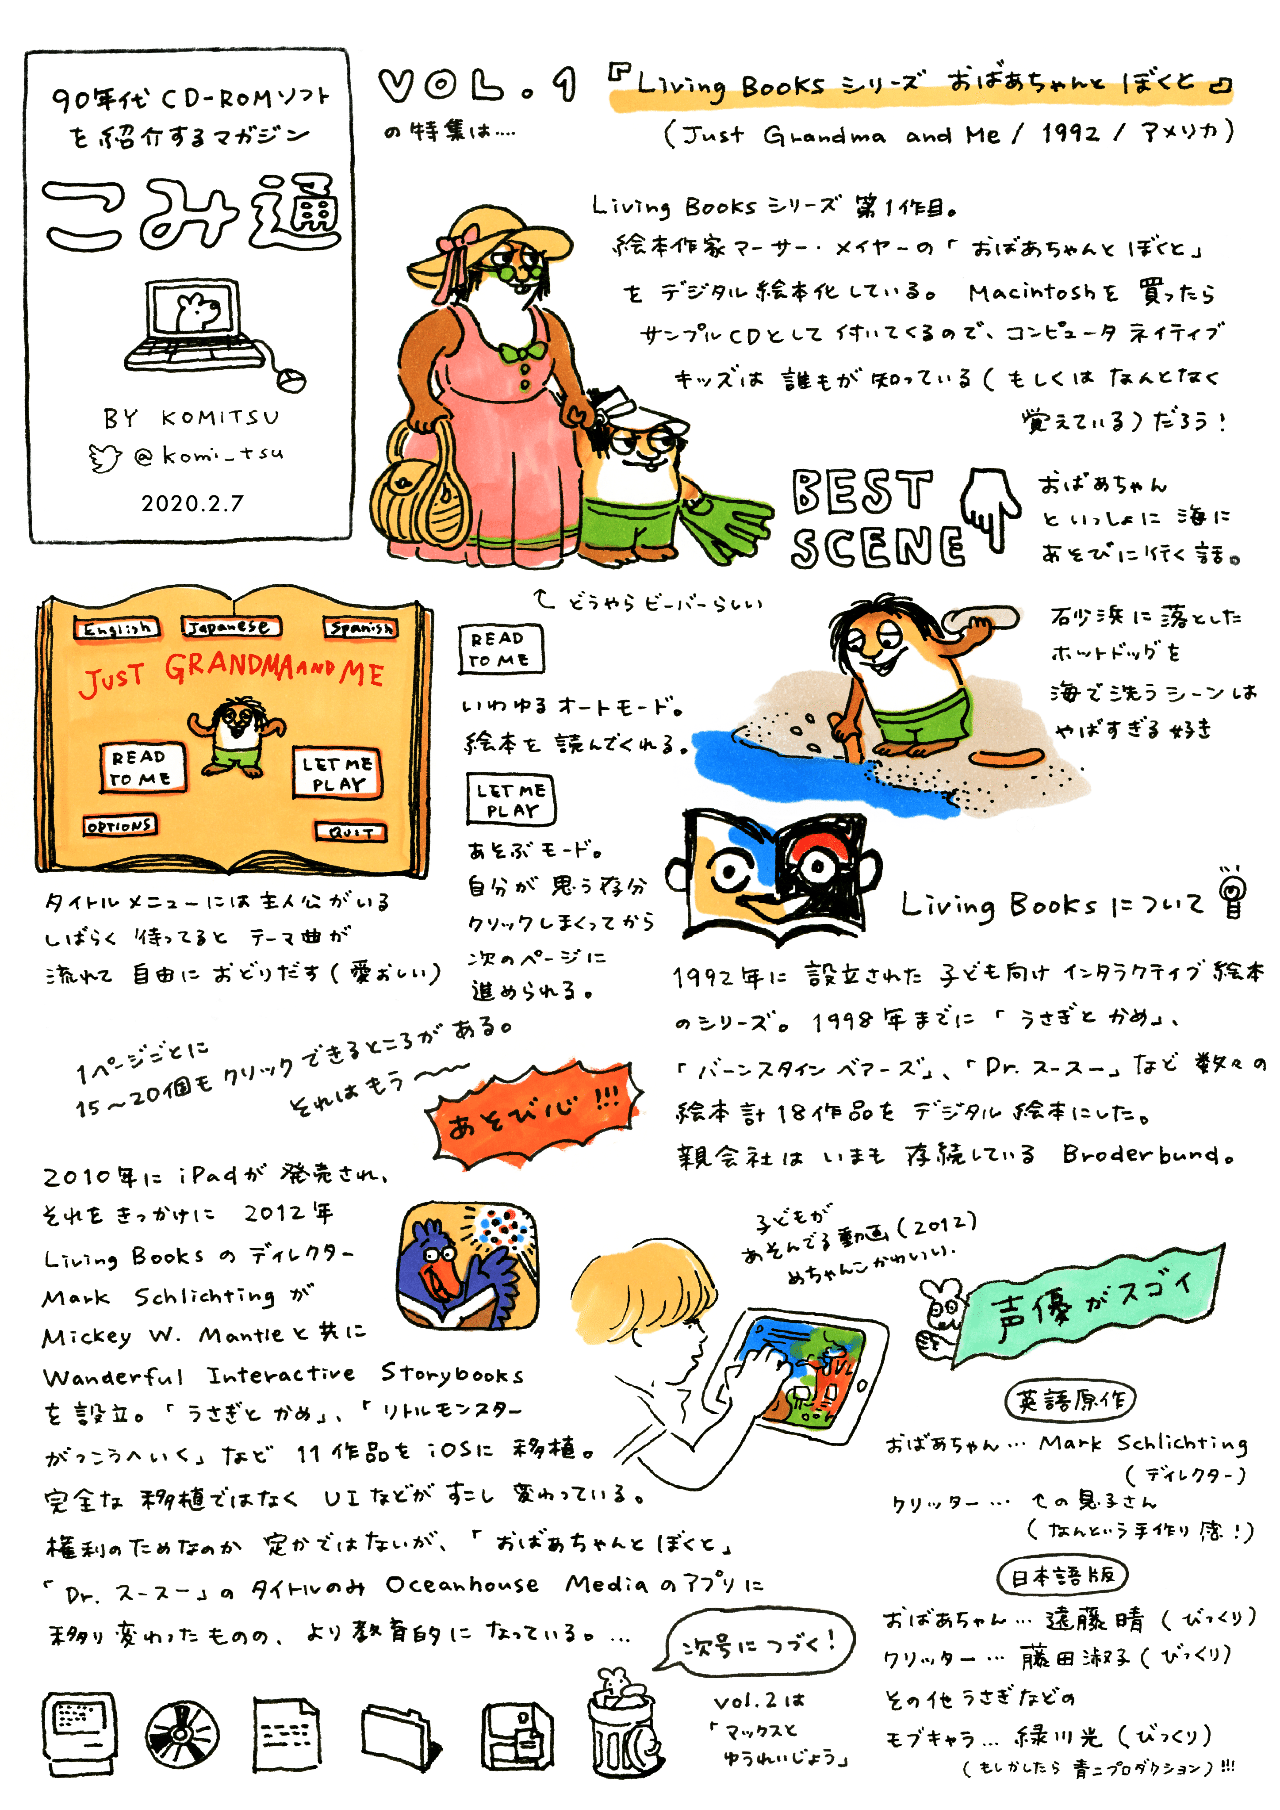 90年代 CD-ROMソフト
を紹介するマガジン
こみ通
BY KOMITSU
@komi_tsu
2020.2.7
VOL.1
の特集は....
『Living Books シリーズ おばあちゃんと ぼくと』
(Just Grandma and Me / 1992 / アメリカ)
Living Books シリーズ 第1作目。
絵本作家マーサー・メイヤーの「おばあちゃんと ぼくと」
を デジタル絵本化している。 Macintoshを 買ったら
サンプルCDとして 付いてくるので、コンピュータ ネイティブ
キッズは 誰もが 知っている(もしくは なんとなく
覚えている)だろう!
BEST
SCENE
おばあちゃん
といっしょに 海に
あそびに行く話。
↑ どうやらビーバーらしい
石少浜に 落とした
ホットドッグを
海で洗うシーンは
やばすぎる好き
English
Japanese
Spanish
JUST GRANDMA AND ME
READ
TO ME
LET ME
PLAY
OPTIONS
QUIT
READ
TO ME
いわゆるオートモード。
絵本を 読んでくれる。
LET ME
PLAY
あそぶモード。
自分が 思う存分
クリックしまくってから
次のページに
進められる。
タイトルメニューには主人公がいる
しばらく 待ってると テーマ曲が
流れて 自由に おどりだす(愛おしい)
1ページごとに
15〜20個も クリックできるところが ある。
それはもう〜〜
あそび心!!!
Living Booksについて
1992年に 設立された 子ども向け インタラクティブ絵本
のシリーズ。 1998年までに「うさぎと かめ」、
「バーンスタイン ベアーズ」、「Dr.スースー」など 数々の
絵本計18作品を デジタル絵本にした。
親会社は いまも 存続している Broderbund。
2010年に iPadが 発売され、
それを きっかけに 2012年
Living Books の ディレクター
Mark Schlichting が
Mickey W. Mantleと共に
Wanderful Interactive Storybooks
を設立。「うさぎと かめ」、「リトルモンスター
がっこうへいく」など 11作品を iOSに 移植。
完全な 移植ではなく UIなどが すこし 変わっている。
権利のためなのか 定かではないが、「おばあちゃんと ぼくと」
「Dr. スースー」の タイトルのみ Oceanhouse Mediaのアプリに
移り変わったものの、より教育的に なっている。...
子どもが
あそんでる動画(2012)
めちゃんこかわいい.
声優がスゴイ
英語原作
おばあちゃん... Mark Schlichting
(ディレクター)
クリッター... ↑の息子さん
(なんという手作り感!)
日本語版
おばあちゃん... 遠藤晴(びっくり)
クリッター... 藤田淑子(びっくり)
その他うさぎなどの
モブキャラ... 緑川光(びっくり)
(もしかしたら 青二プロダクション)!!!
次号につづく!
vol.2は
「マックスと
ゆうれいじょう」